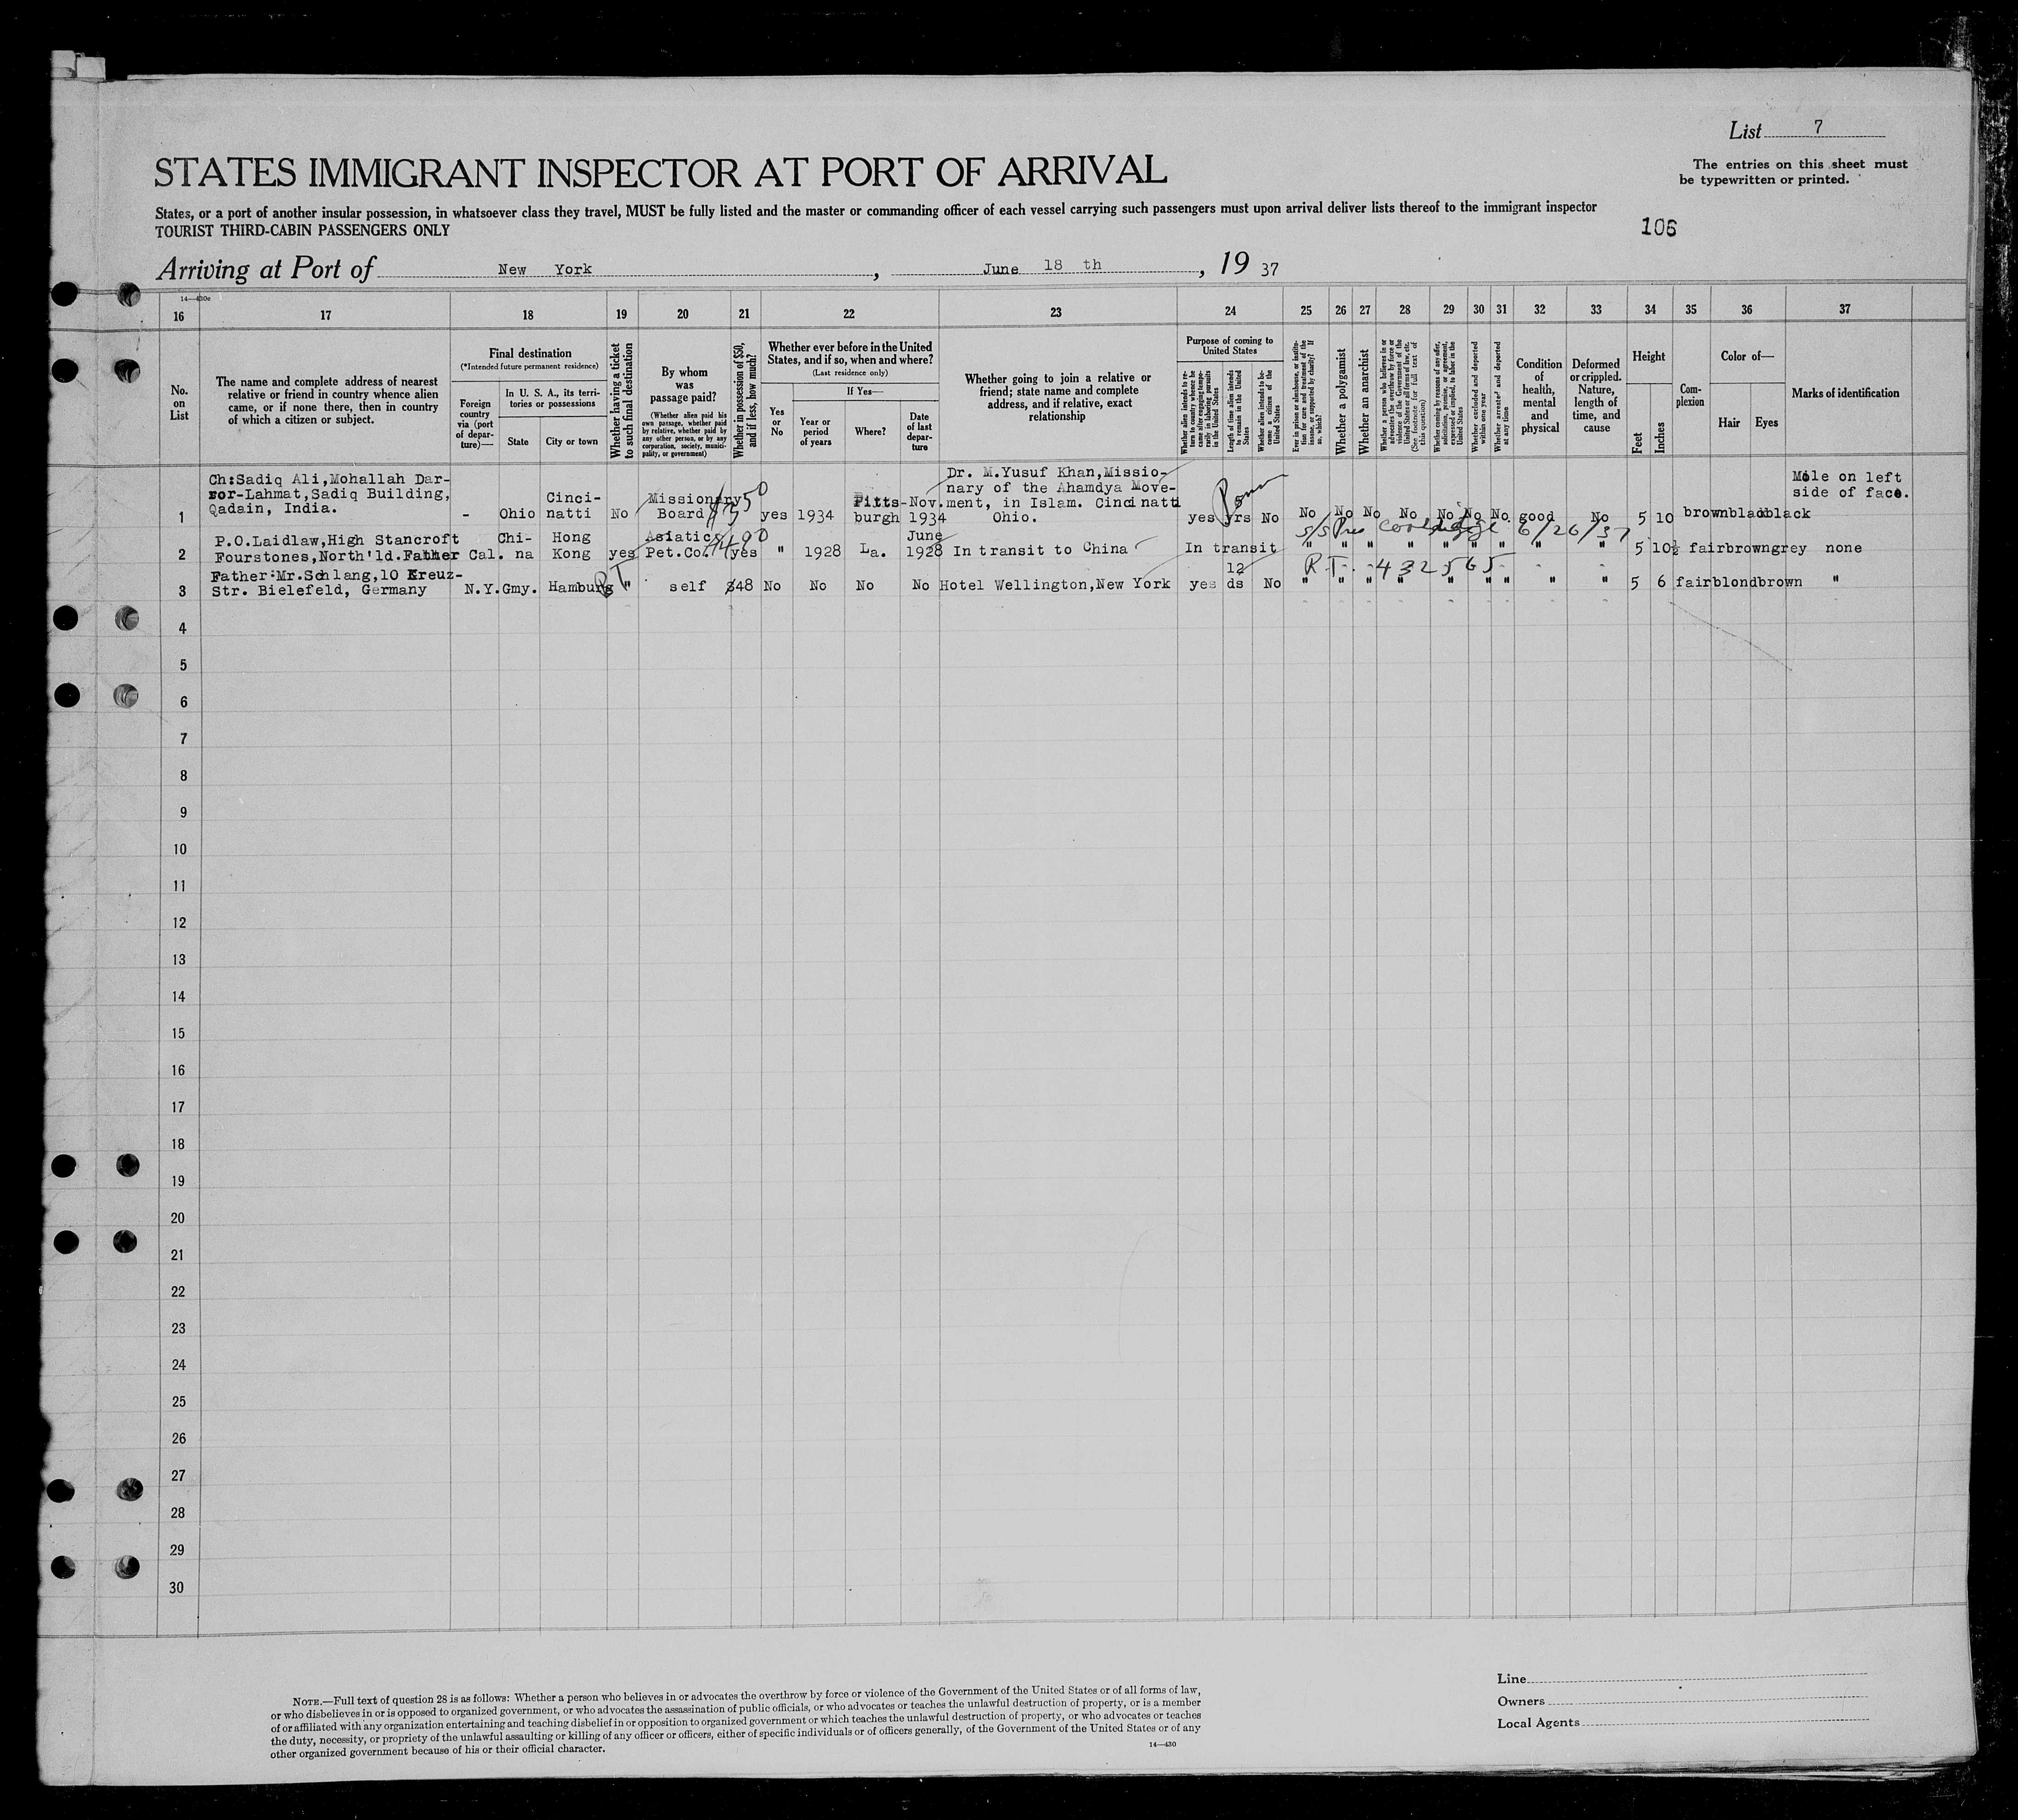 List 7
STATES IMMIGRANT INSPECTOR AT PORT OF ARRIVAL
The entries on this sheet must
be typewritten or printed.
States, or a port of another insular possession, in whatsoever class they travel, MUST be fully listed and the master or commanding officer of each vessel carrying such passengers must upon arrival deliver lists thereof to the immigrant inspector
TOURIST THIRD-CABIN PASSENGERS ONLY
106
Arriving at Port of New York, June 18 th, 19 37
14—430e
16 17 18 19 20 21 22 23 24 25 26 27 28 29 30 31 32 33 34 35 36 37
No.
on
List
The name and complete address of nearest
relative or friend in country whence alien
came, or if none there, then in country
of which a citizen or subject.
Final destination
(*Intended future permanent residence)
Foreign
country
via (port
of depar-
ture)—
In U. S. A., its terri-
tories or possessions
State
City or town
Whether having a ticket
to such final destination
By whom
was
passage paid?
(Whether alien paid his
own passage, whether paid
by relative, whether paid by
any other person, or by any
corporation, society, munici-
pality, or government)
Whether in possession of $50,
and if less, how much?
Whether ever before in the United
States, and if so, when and where?
(Last residence only)
Yes
or
No
If Yes—
Year or
period
of years
Where?
Date
of last
depar-
ture
Whether going to join a relative or
friend; state name and complete
address, and if relative, exact
relationship
Purpose of coming to
United States
Whether alien intends to re-
turn to country whence he
came after engaging tempo-
rarily in laboring pursuits
in the United States
Length of time alien intends
to remain in the United
States
Whether alien intends to be-
come a citizen of the
United States
Ever in prison or almshouse, or institu-
tion for care and treatment of the
insane, or supported by charity? If
so, which?
Whether a polygamist
Whether an anarchist
Whether a person who believes in or
advocates the overthrow by force or
violence of the Government of the
United States or all forms of law, etc.
(See footnote for full text of
this question)
Whether coming by reasons of any offer,
solicitation, promise, or agreement,
expressed or implied, to labor in the
United States
Whether excluded and deported
within one year
Whether arrested and deported
at any time
Condition
of
health,
mental
and
physical
Deformed
or crippled.
Nature,
length of
time, and
cause
Height
Feet
Inches
Com-
plexion
Color of—
Hair
Eyes
Marks of identification
1 Ch:Sadiq Ali,Mohallah Dar-
ror-Lahmat,Sadiq Building,
Qadain, India.
- Ohio Cinci-
natti No Missionary
Board $50 yes 1934 Pitts-
burgh Nov.
1934
Dr. M.Yusuf Khan,Missio-
nary of the Ahamdya Move-
ment, in Islam. Cincinatti
Ohio.
yes 5
yrs No No No No No No No No good No 5 10 brown black black Mole on left
side of face.
S/S Pres Coolidge 6/26/37
2 P.O.Laidlaw,High Stancroft
Fourstones,North'ld.Father
Cal. Chi-
na Hong
Kong yes Asiatic
Pet.Co. yes " 1928 La. June
1928 In transit to China In transit " " " " " " " " " 5 10½ fair brown grey none
R.T. 432565
3 Father:Mr.Schlang,10 Kreuz-
Str. Bielefeld, Germany
N.Y. Gmy. Hamburg RT " self $48 No No No No Hotel Wellington,New York yes 12
ds No " " " " " " " " " 5 6 fair blond brown "
4
5
6
7
8
9
10
11
12
13
14
15
16
17
18
19
20
21
22
23
24
25
26
27
28
29
30
NOTE.—Full text of question 28 is as follows: Whether a person who believes in or advocates the overthrow by force or violence of the Government of the United States or of all forms of law,
or who disbelieves in or is opposed to organized government, or who advocates the assassination of public officials, or who advocates or teaches the unlawful destruction of property, or is a member
of or affiliated with any organization entertaining and teaching disbelief in or opposition to organized government or which teaches the unlawful destruction of property, or who advocates or teaches
the duty, necessity, or propriety of the unlawful assaulting or killing of any officer or officers, either of specific individuals or of officers generally, of the Government of the United States or of any
other organized government because of his or their official character.
14—430
Line
Owners
Local Agents